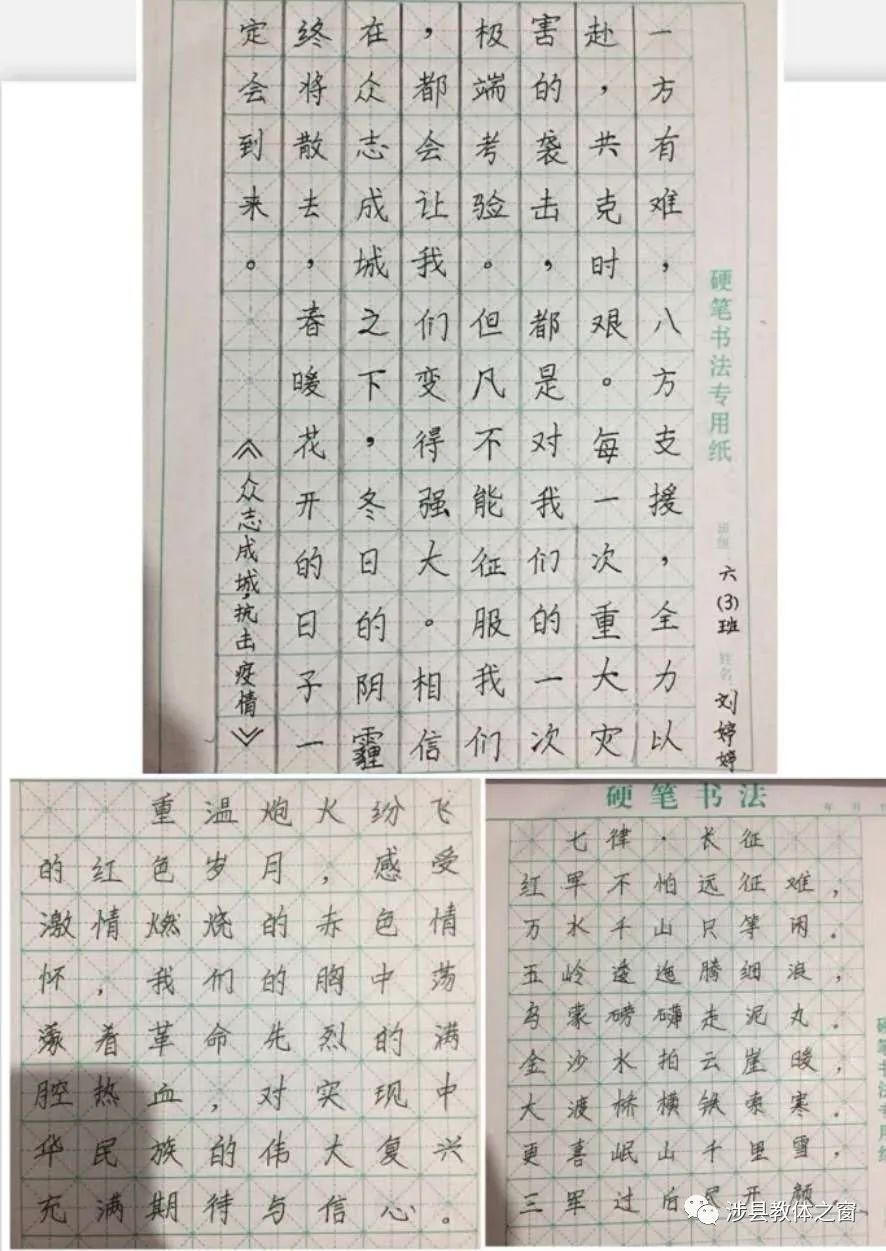 硬笔书法专用纸
班级 六(3)班 姓名 刘婷婷
一方有难，八方支援，全力以
赴，共克时艰。每一次重大灾
害的袭击，都是对我们的一次
极端考验。但凡不能征服我们
，都会让我们变得强大。相信
在众志成城之下，冬日的阴霾
终将散去，春暖花开的日子一
定会到来。
《众志成城，抗击疫情》
重温炮火纷飞
的红色岁月，感受
激情燃烧的赤色情
怀，我们的胸中荡
漾着革命先烈的满
腔热血，对实现中
华民族的伟大复兴
充满期待与信心。
硬笔书法
年 月
七律·长征
红军不怕远征难，
万水千山只等闲。
五岭逶迤腾细浪，
乌蒙磅礴走泥丸。
金沙水拍云崖暖，
大渡桥横铁索寒。
更喜岷山千里雪，
三军过后尽开颜。
硬笔书法专用纸
涉县教体之窗